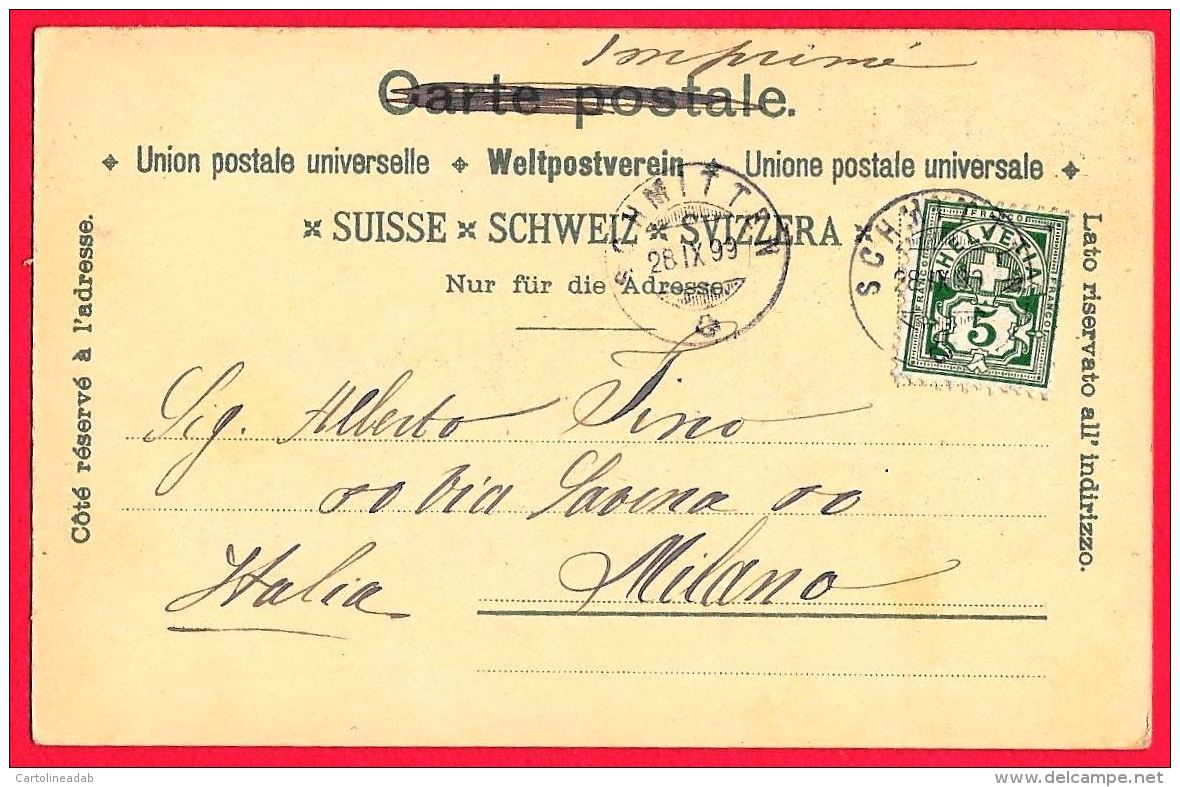 Imprimé
Carte postale.
Union postale universelle Weltpostverein Unione postale universale
SUISSE SCHWEIZ SVIZZERA
Nur für die Adresse.
Côté réservé à l'adresse.
Lato riservato all' indirizzo.
SCHMITTEN
28 IX 99
SCHMITTEN
28 IX 99
FRANCO
HELVETIA
FRANCO
FRANCO
5
Sig. Alberto Fino
Via Savona
Milano
Italia
Cartolineadab
delcampe.net